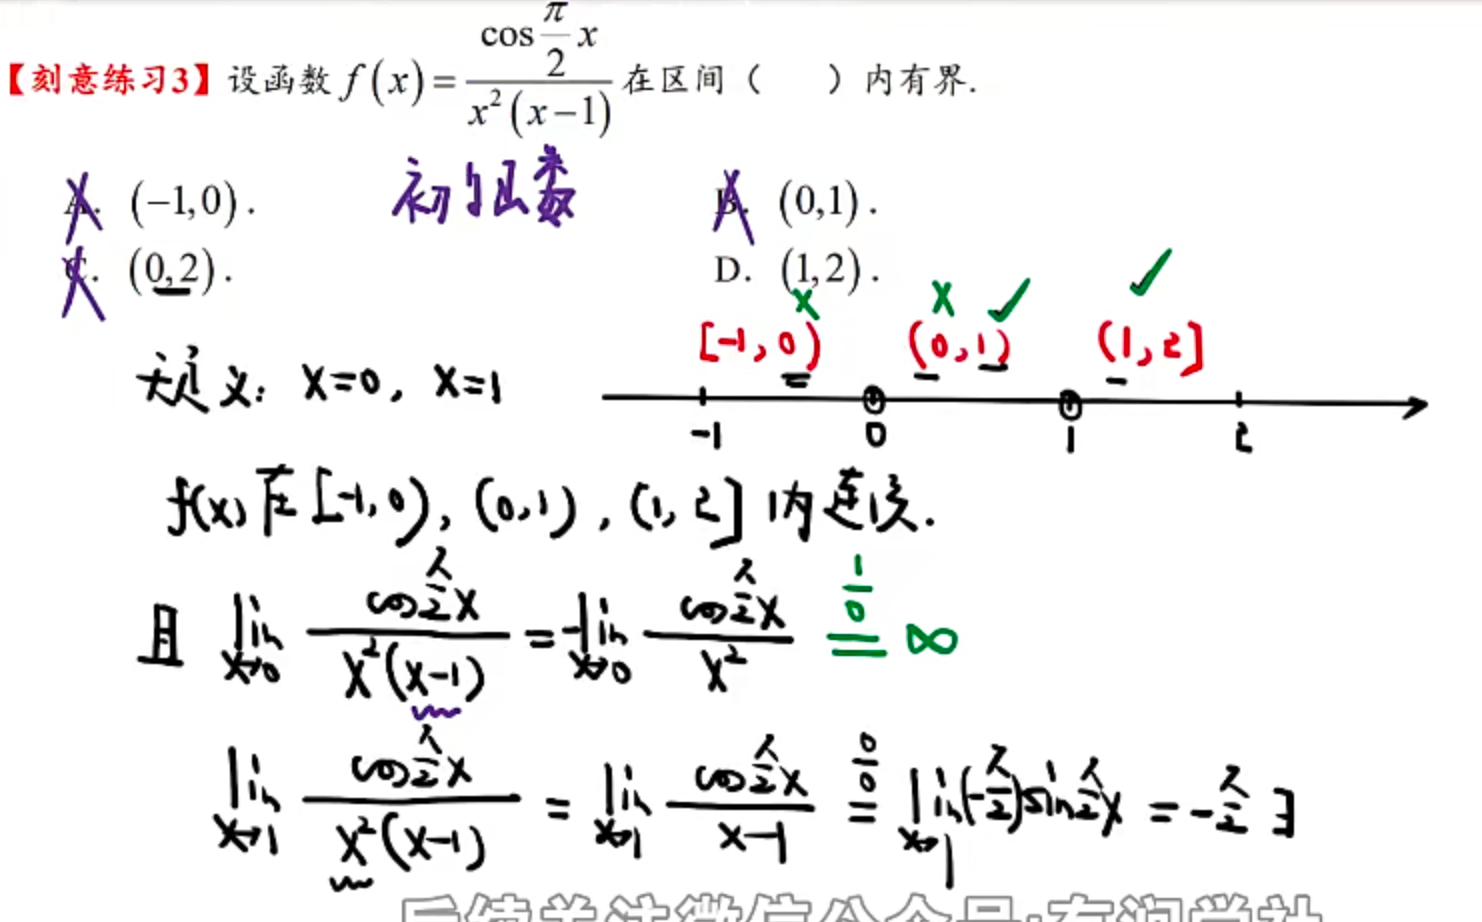 【刻意练习3】设函数 f(x)=cos(π/2)x/(x²(x−1)) 在区间（　　）内有界.
A. (−1,0).　初等函数　B. (0,1).
C. (0,2).　D. (1,2).
× × ✓ ✓
[-1,0) (0,1) (1,2]
无定义: x=0, x=1
-1 0 1 2
f(x)在[-1,0), (0,1), (1,2]内连续.
且 lim x→0 cos(π/2)x/(x²(x-1)) = -lim x→0 cos(π/2)x/x² =(1/0) ∞
lim x→1 cos(π/2)x/(x²(x-1)) = lim x→1 cos(π/2)x/(x-1) =(0/0) lim x→1 (-π/2)sin(π/2)x = -π/2 ∃
后续关注微信公众号:有润学社